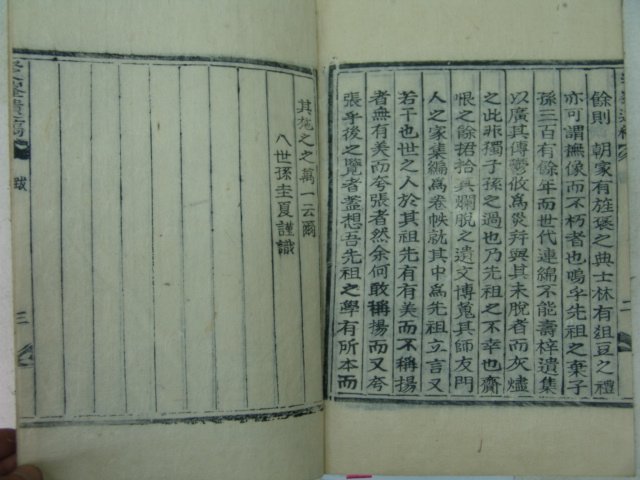 餘則 朝家有旌褒之典士林有俎豆之禮
亦可謂撫像而不朽者也嗚乎先祖之棄子
孫三百有餘年而世代連綿不能壽梓遺集
以廣其傳鬱攸爲災幷與其未脫者而灰燼
之此非獨子孫之過也乃先祖之不幸也齎
恨之餘捃拾其爛脫之遺文博蒐其師友門
人之家集編爲卷帙就其中爲先祖立言又
若干也世之人於其祖先有有美而不稱揚
者無有美而夸張者然余何敢稱揚而又夸
張乎後之覽者蓋想吾先祖之學有所本而
二
其施之之萬一云爾
八世孫圭夏謹識
遺稿
跋
三